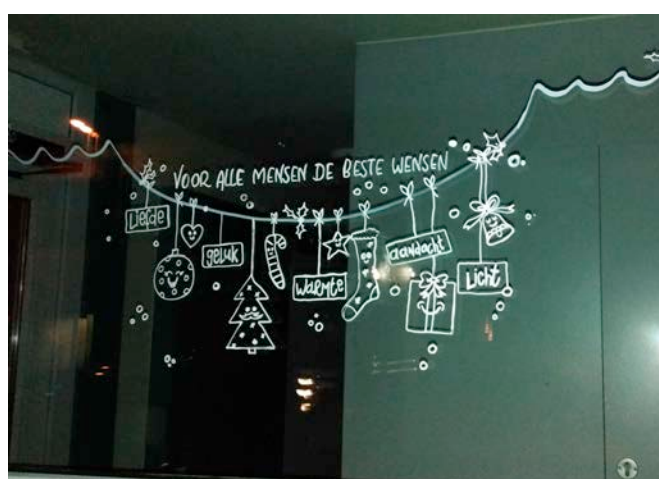 VOOR ALLE MENSEN DE BESTE WENSEN
Liefde
geluk
warmte
aandacht
Licht